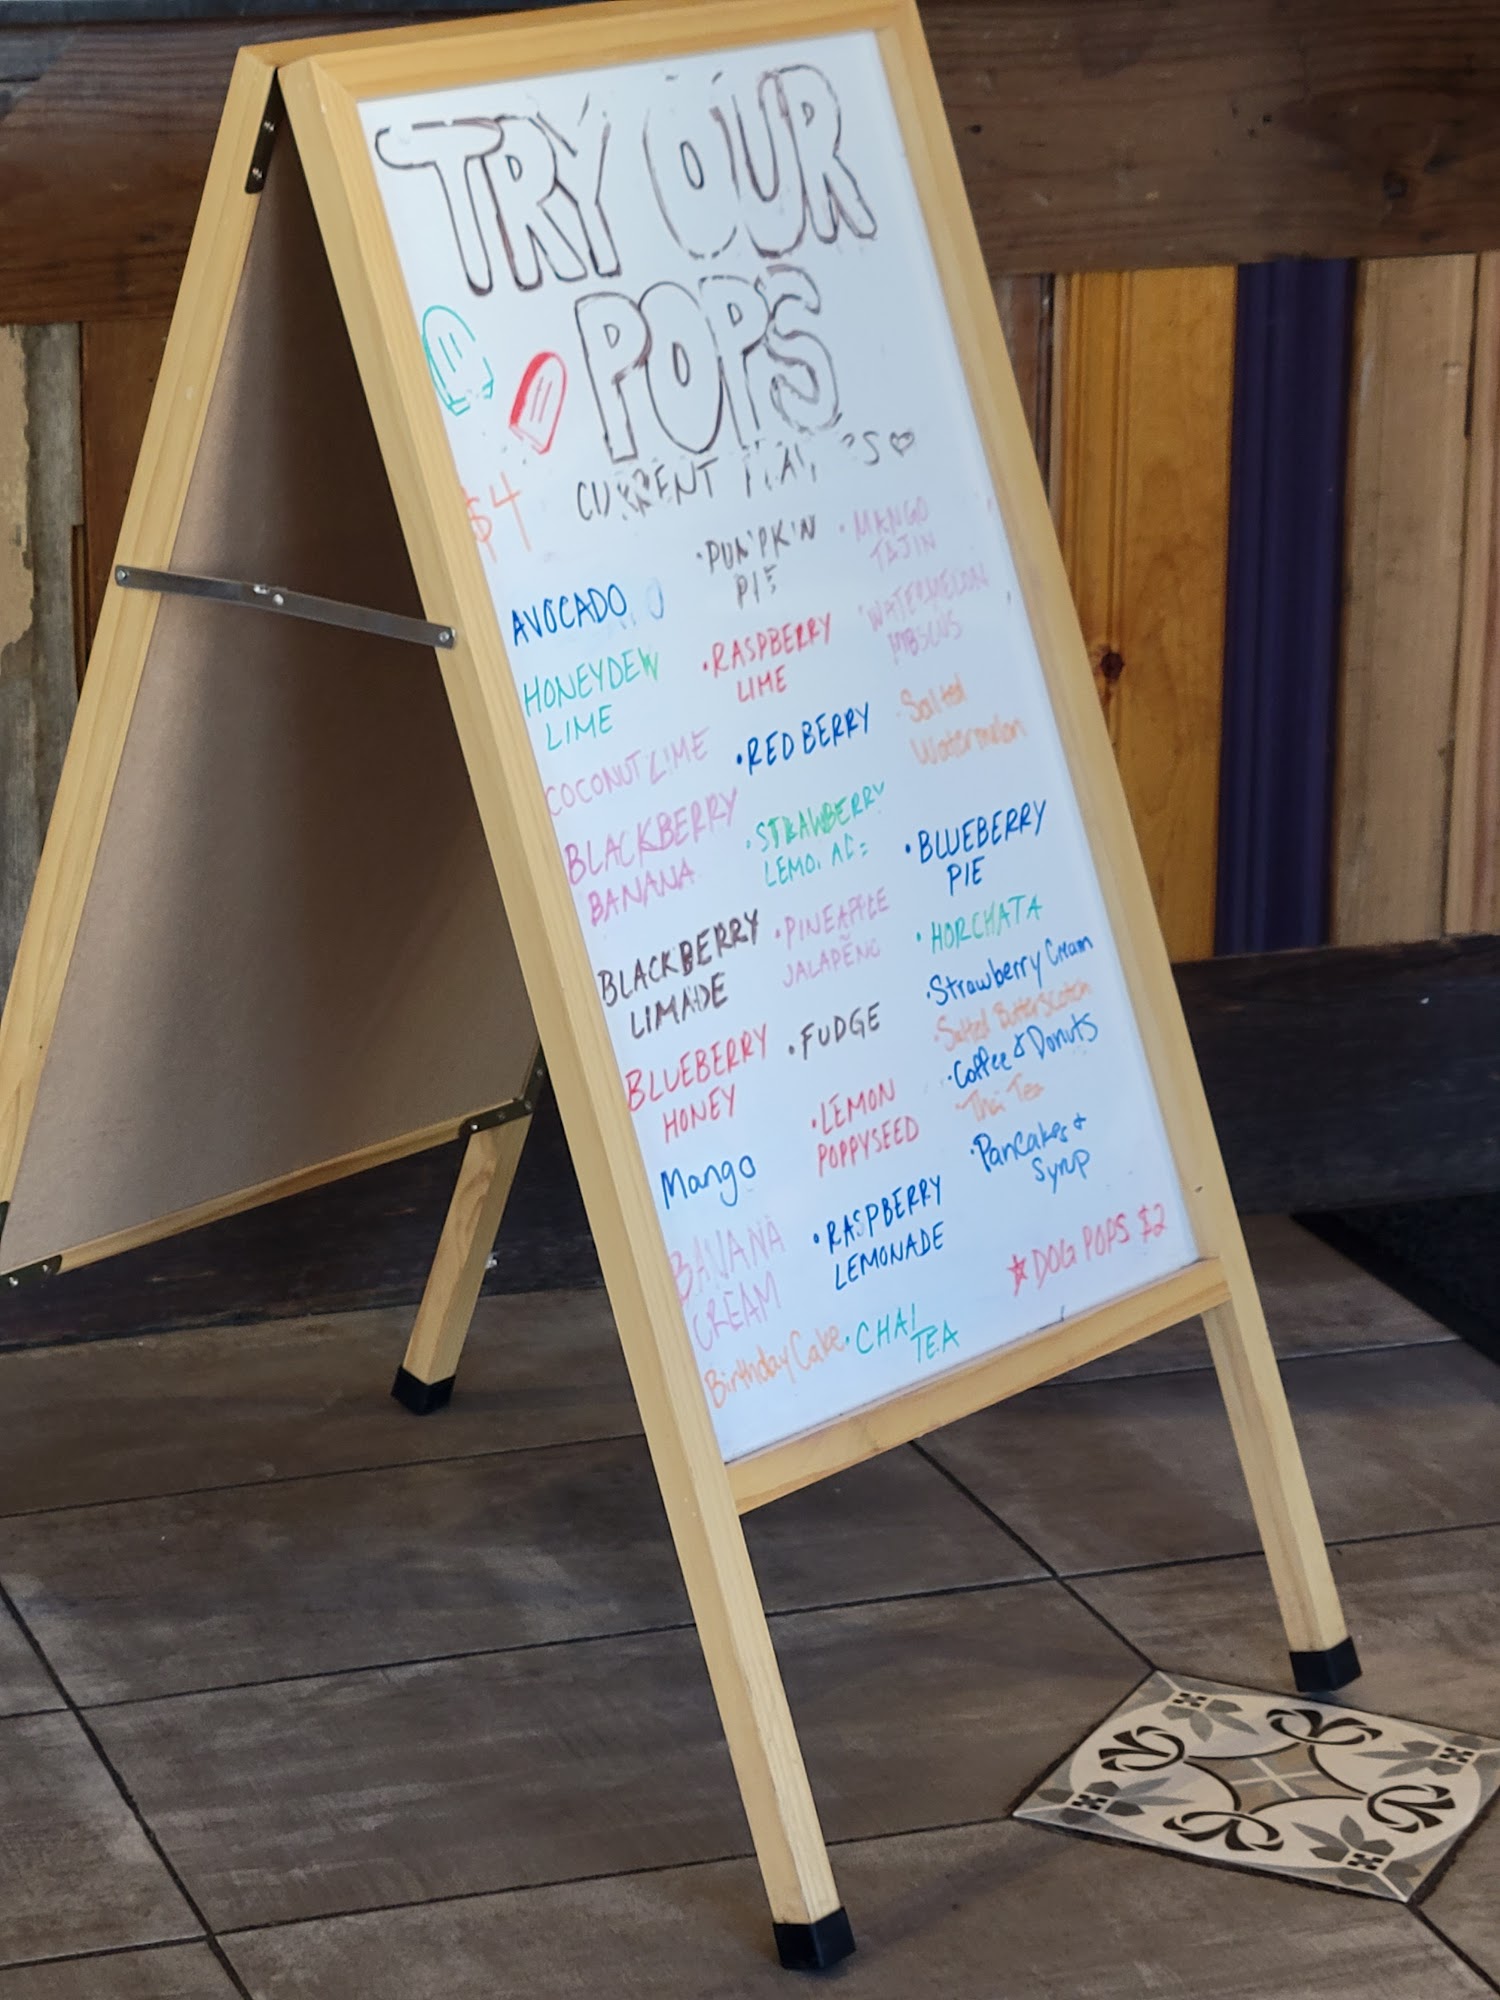 TRY OUR
POPS
CURRENT
$4
AVOCADO
HONEYDEW
LIME
COCONUT LIME
BLACKBERRY
BANANA
BLACKBERRY
LIMADE
BLUEBERRY
HONEY
Mango
BANANA
CREAM
Birthday Cake
·PUMPKIN
PIE
·RASPBERRY
LIME
·RED BERRY
·STRAWBERRY
LEMONADE
·PINEAPPLE
JALAPEÑO
·FUDGE
·LEMON
POPPYSEED
·RASPBERRY
LEMONADE
·CHAI
TEA
·MANGO
TAJIN
·WATERMELON
HIBSCUS
·Salted
Watermelon
·BLUEBERRY
PIE
·HORCHATA
·Strawberry Cream
·Salted Butterscotch
·Coffee & Donuts
·Thai Tea
·Pancakes &
Syrup
☆DOG POPS $2